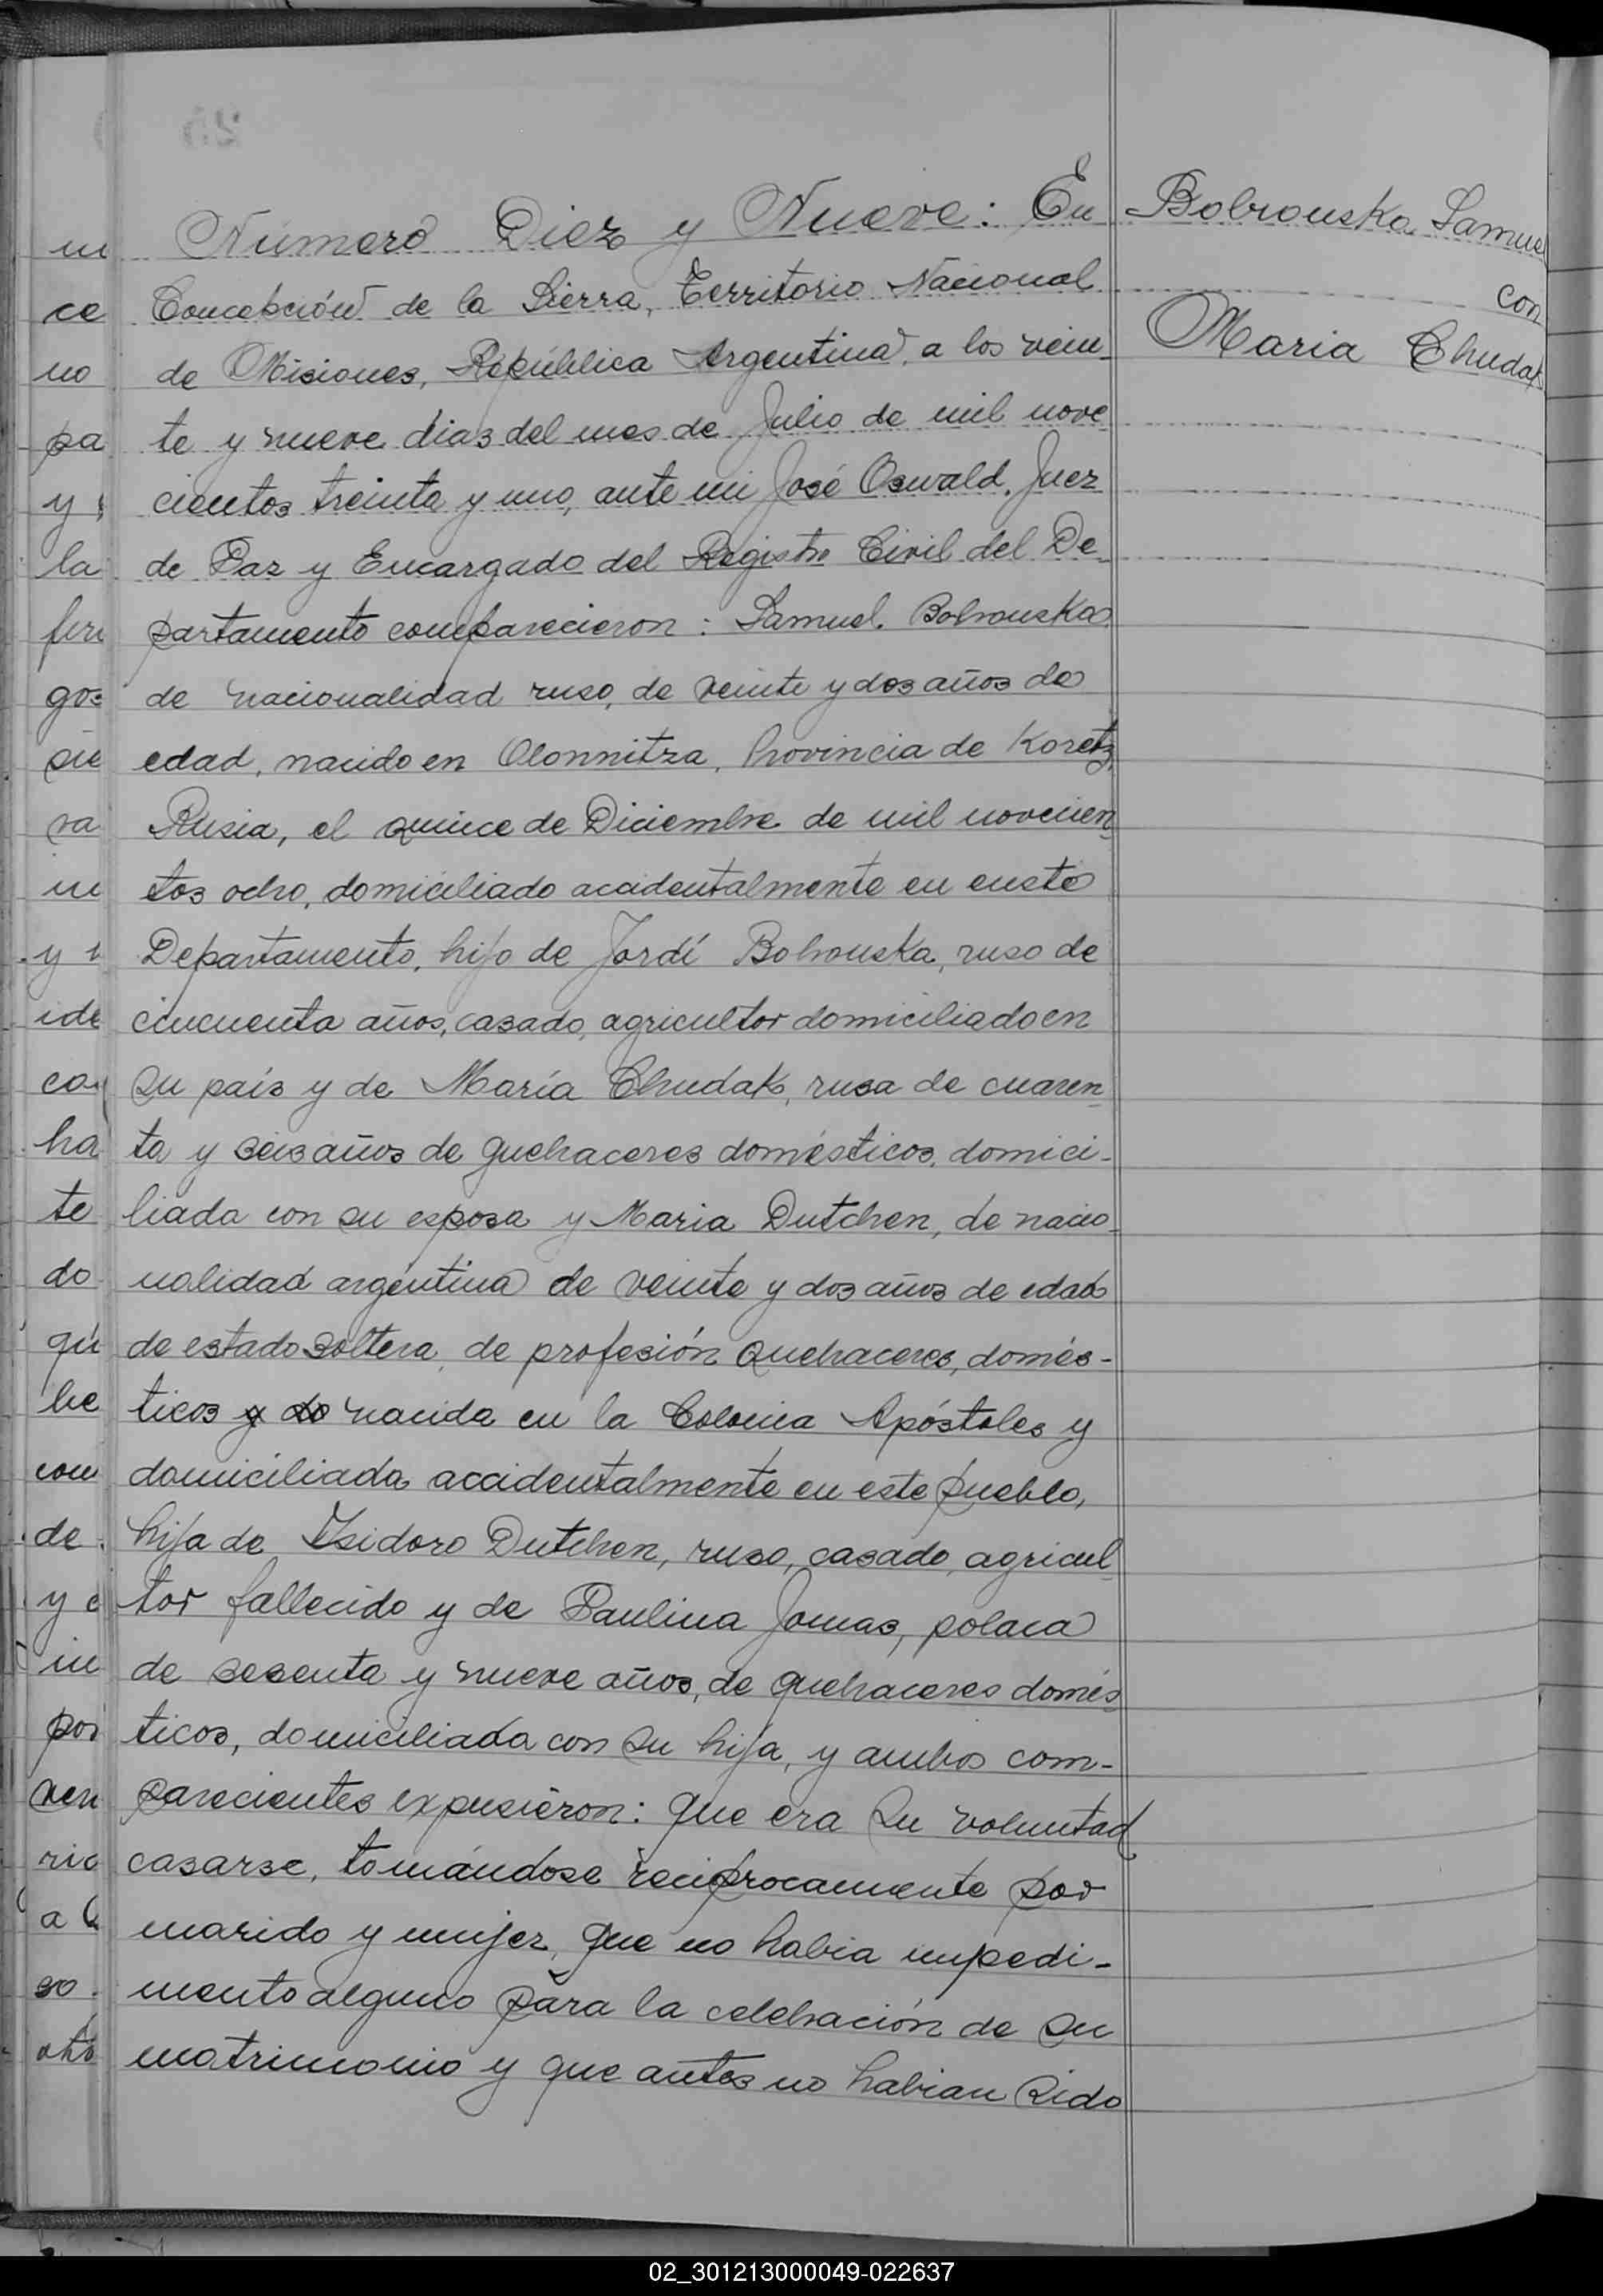 Número Diez y Nueve: En
Concepción de la Sierra, Territorio Nacional
de Misiones, República Argentina, a los vein
te y nueve dias del mes de Julio de mil nove
cientos treinta y uno, ante mi José Oswald, Juez
de Paz y Encargado del Registro Civil del De
partamento comparecieron: Samuel Bobrouska
de nacionalidad ruso, de veinte y dos años de
edad, nacido en Olonnitza, Provincia de Koretz,
Rusia, el quince de Diciembre de mil novecien
tos ocho, domiciliado accidentalmente en eneste
Departamento, hijo de Jordí Bobrouska, ruso de
cincuenta años, casado, agricultor domiciliado en
su país y de María Chudak, rusa de cuaren
ta y seis años de quehaceres domésticos, domici-
liada con su esposa y Maria Dutchen, de nacio-
nalidad argentina de veinte y dos años de edad
de estado soltera, de profesión quehaceres, domés-
ticos y do nacida en la Colonia Apóstoles y
domiciliada accidentalmente en este pueblo,
hija de Isidoro Dutchen, ruso, casado, agricul
tor fallecido y de Paulina Jomas, polaca
de sesenta y nueve años, de quehaceres domés
ticos, domiciliada con su hija, y ambos com-
parecientes expusieron: que era su voluntad
casarse, tomándose reciprocamente por
marido y mujer, que no habia impedi-
mento alguno para la celebración de su
matrimonio y que antes no habian sido
Bobrouska Samuel
con
Maria Chudak
ce
no
pa
y
la
gos
sie
va
in
y
ide
ha
te
do
qu
be
com
de
y
in
por
ven
rio
a
so
02_301213000049-022637